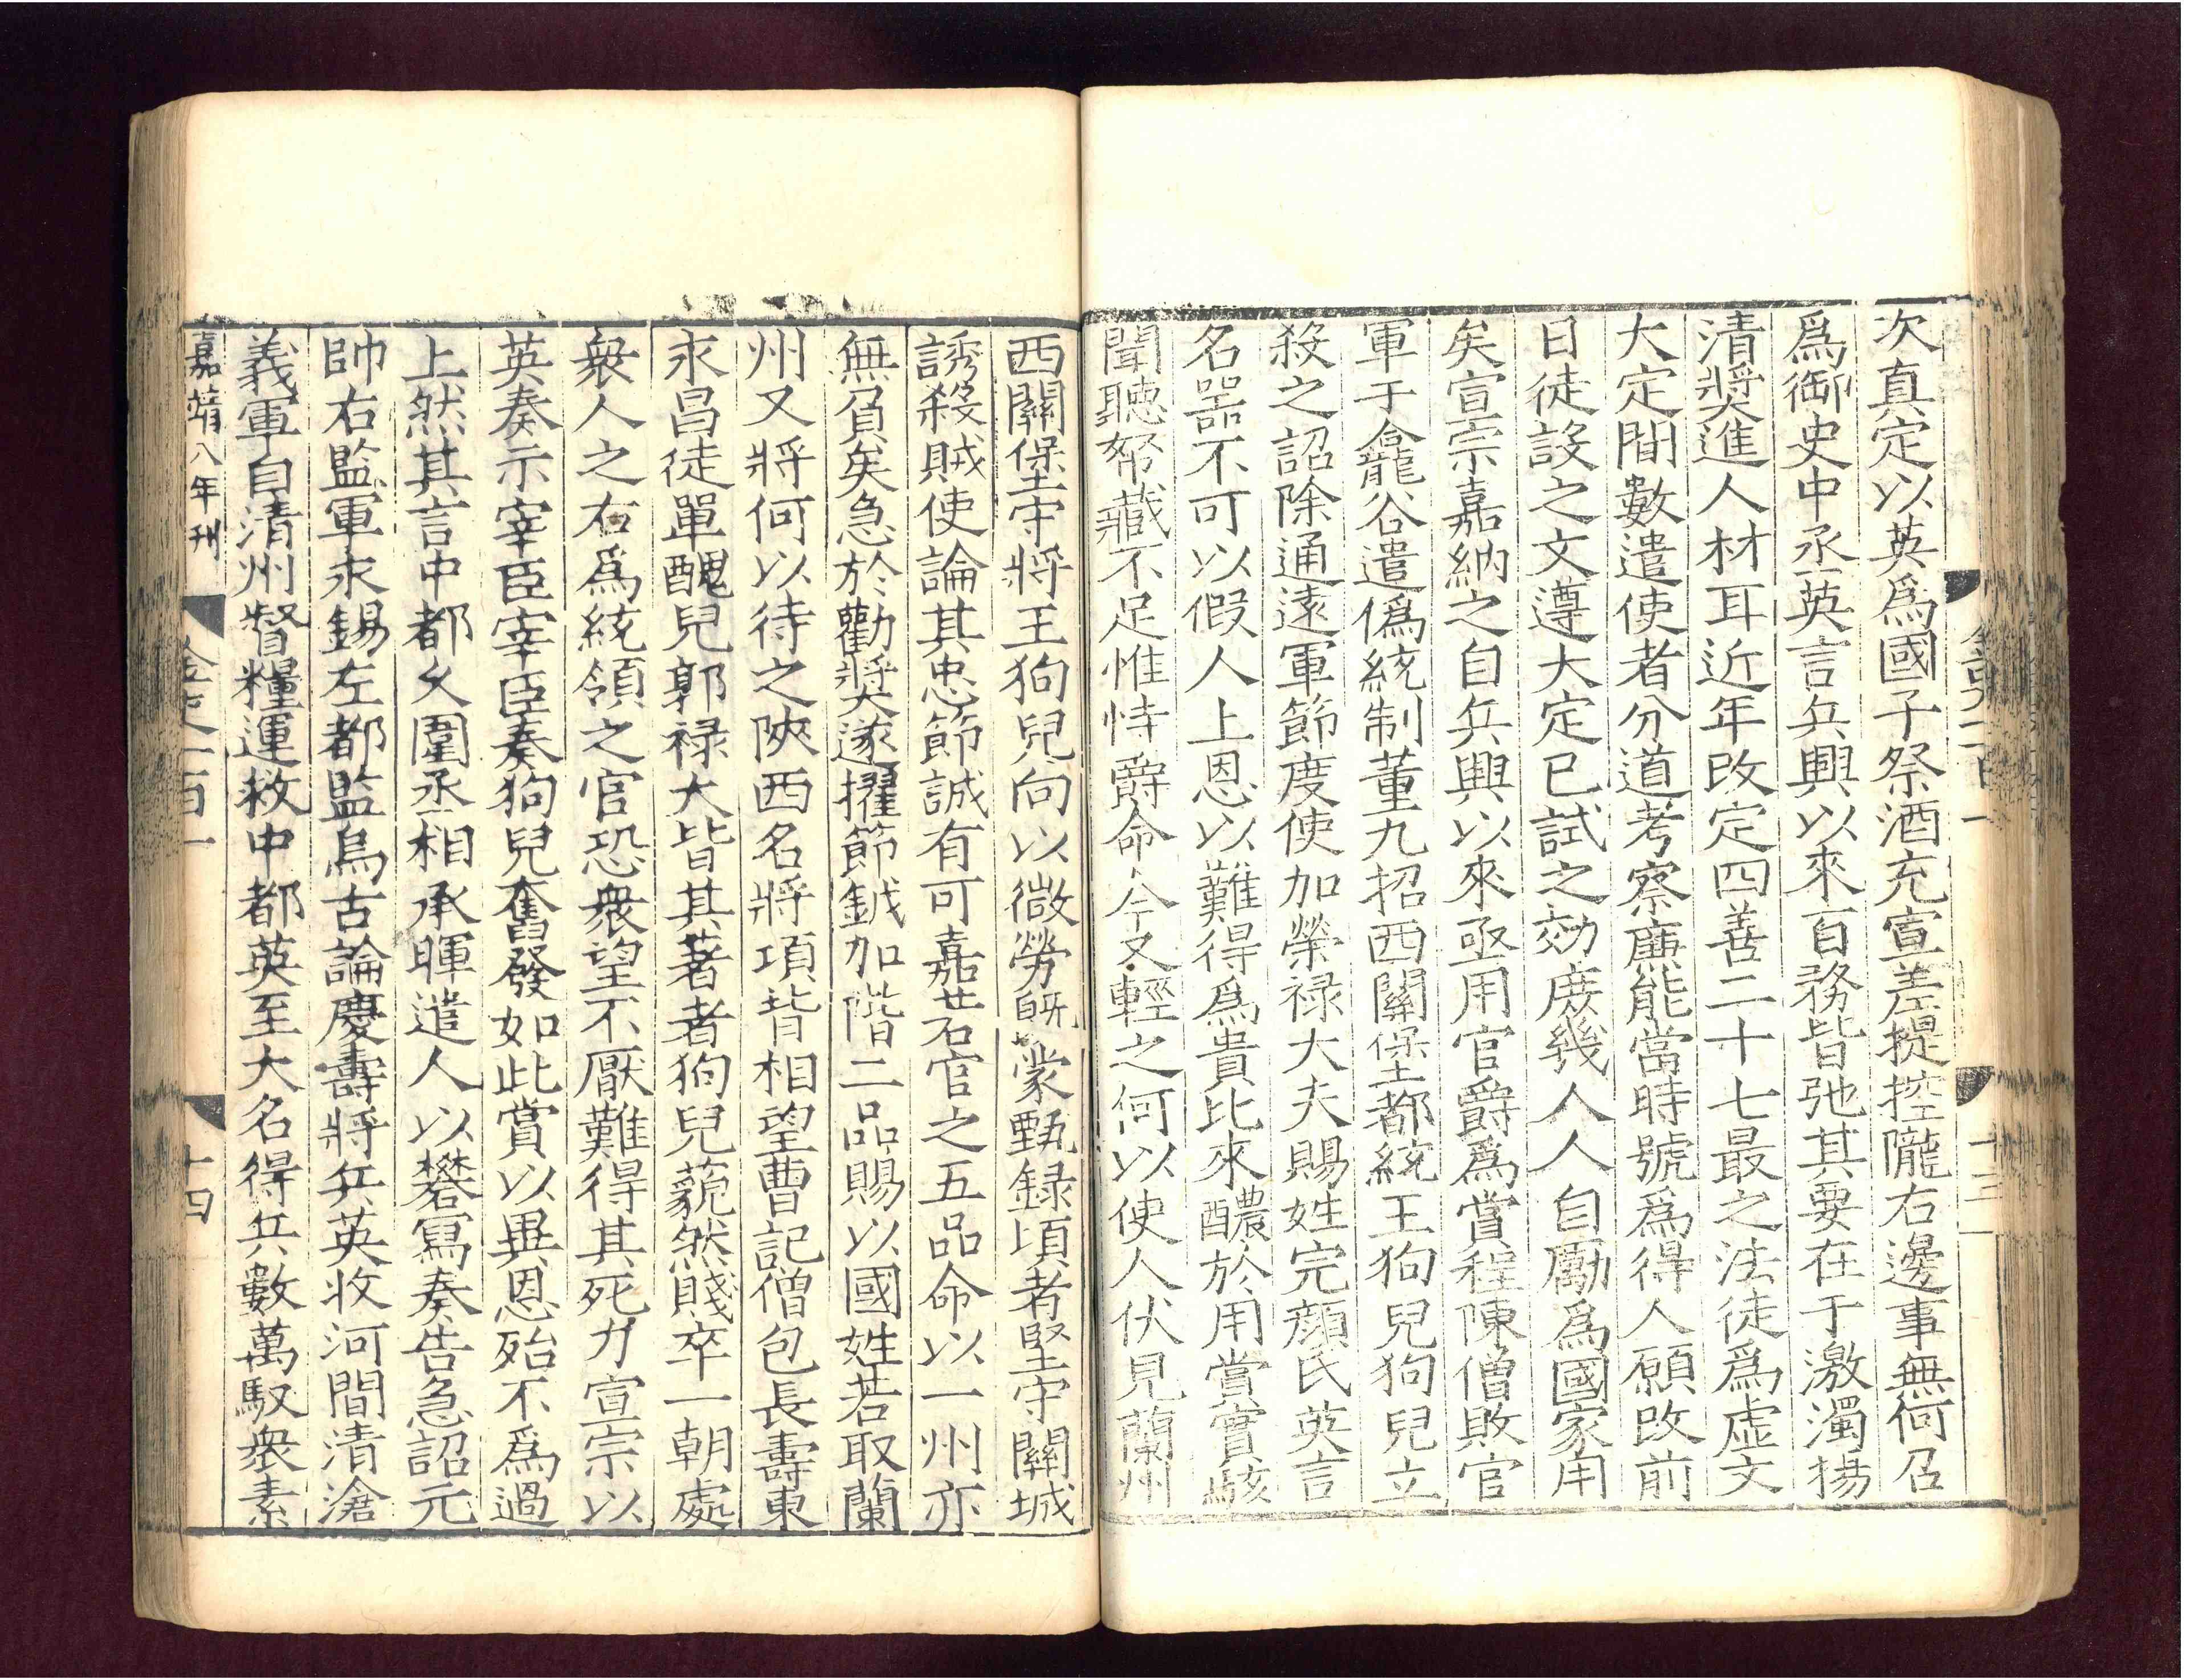 次真定以英爲國子祭酒充宣差提控隴右邊事無何召
爲御史中丞英言兵興以來百務皆弛其要在于激濁揚
清奬進人材耳近年改定四善二十七最之法徒爲虚文
大定間數遣使者分道考察廉能當時號爲得人願改前
日徒設之文遵大定已試之効庶幾人人自勵爲國家用
矣宣宗嘉納之自兵興以來亟用官爵爲賞程陳僧敗官
軍于龕谷遣僞統制董九招西關堡都統王狗兒狗兒立
殺之詔除通遠軍節度使加榮禄大夫賜姓完顔氏英言
名器不可以假人上恩以難得爲貴比來醲於用賞實駭
聞聽帑藏不足惟恃爵命今又輕之何以使人伏見蘭州
西關堡守將王狗兒向以微勞旣蒙甄録頃者堅守關城
誘殺賊使論其忠節誠有可嘉若官之五品命以一州亦
無負矣急於勸奬遂擢節鉞加階二品賜以國姓若取蘭
州又將何以待之陜西名將項背相望曹記僧包長壽東
永昌徒單醜兒郭禄大皆其著者狗兒藐然賤卒一朝處
衆人之右爲統領之官恐衆望不厭難得其死力宣宗以
英奏示宰臣宰臣奏狗兒奮發如此賞以異恩殆不爲過
上然其言中都乆圍丞相承暉遣人以礬寫奏告急詔元
帥右監軍永錫左都監烏古論慶壽將兵英收河間清滄
義軍自清州督糧運救中都英至大名得兵數萬馭衆素
嘉靖八年刊
金史一百一
十四